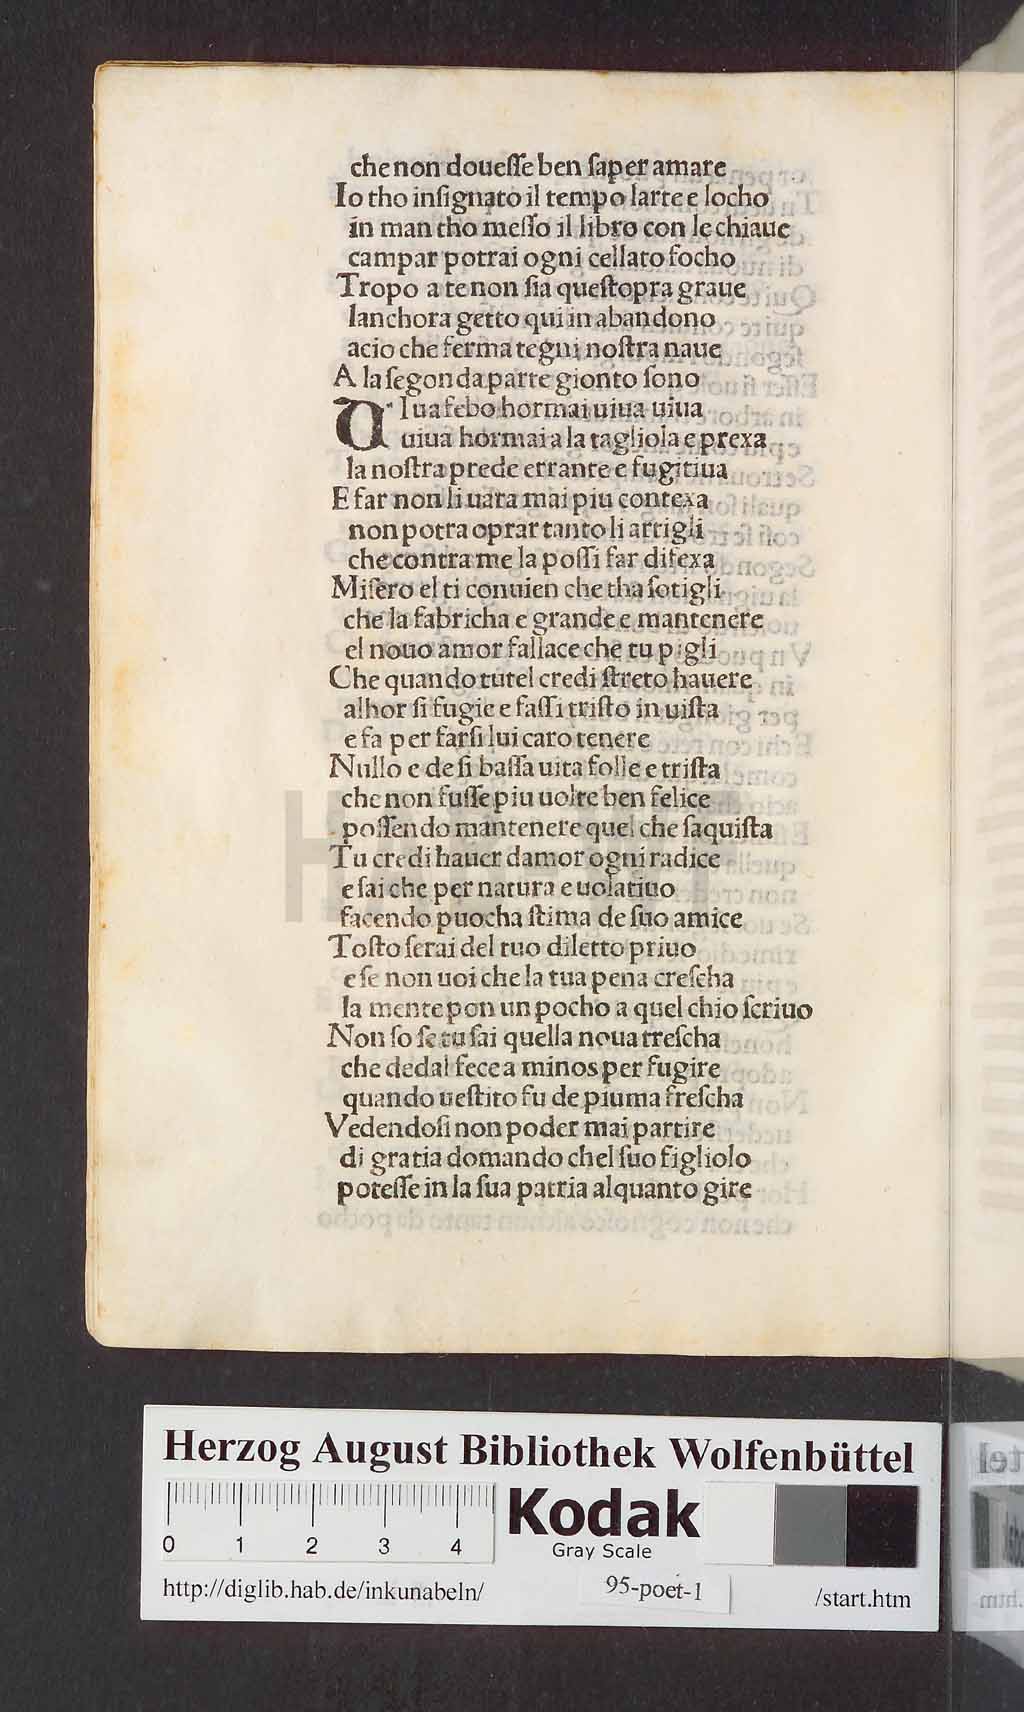 che non doueſſe ben ſaper amare
Io tho inſignato il tempo larte e locho
in man tho meſſo il libro con le chiaue
campar potrai ogni cellato focho
Tropo a te non ſia queſtopra graue
lanchora getto qui in abandono
acio che ferma tegni noſtra naue
A la ſegonda parte gionto ſono
Viua febo hormai uiua uiua
uiua hormai a la tagliola e prexa
la noſtra prede errante e fugitiua
E far non li uara mai piu contexa
non potra oprar tanto li artigli
che contra me la poſſi far difexa
Miſero el ti conuien che tha ſotigli
che la fabricha e grande e mantenere
el nouo amor fallace che tu pigli
Che quando tutel credi ſtreto hauere
alhor ſi fugie e faſſi triſto in uiſta
e fa per farſi lui caro tenere
Nullo e de ſi baſſa uita folle e triſta
che non fuſſe piu uolte ben felice
poſſendo mantenere quel che ſaquiſta
Tu credi hauer damor ogni radice
e ſai che per natura e uolatiuo
facendo puocha ſtima de ſuo amice
Toſto ſerai del tuo diletto priuo
e ſe non uoi che la tua pena creſcha
la mente pon un pocho a quel chio ſcriuo
Non ſo ſe tu ſai quella noua treſcha
che dedal fece a minos per fugire
quando ueſtito fu de piuma freſcha
Vedendoſi non poder mai partire
di gratia domando chel ſuo figliolo
poteſſe in la ſua patria alquanto gire
HAB
Herzog August Bibliothek Wolfenbüttel
0 1 2 3 4
Kodak
Gray Scale
http://diglib.hab.de/inkunabeln/ 95-poet-1 /start.htm